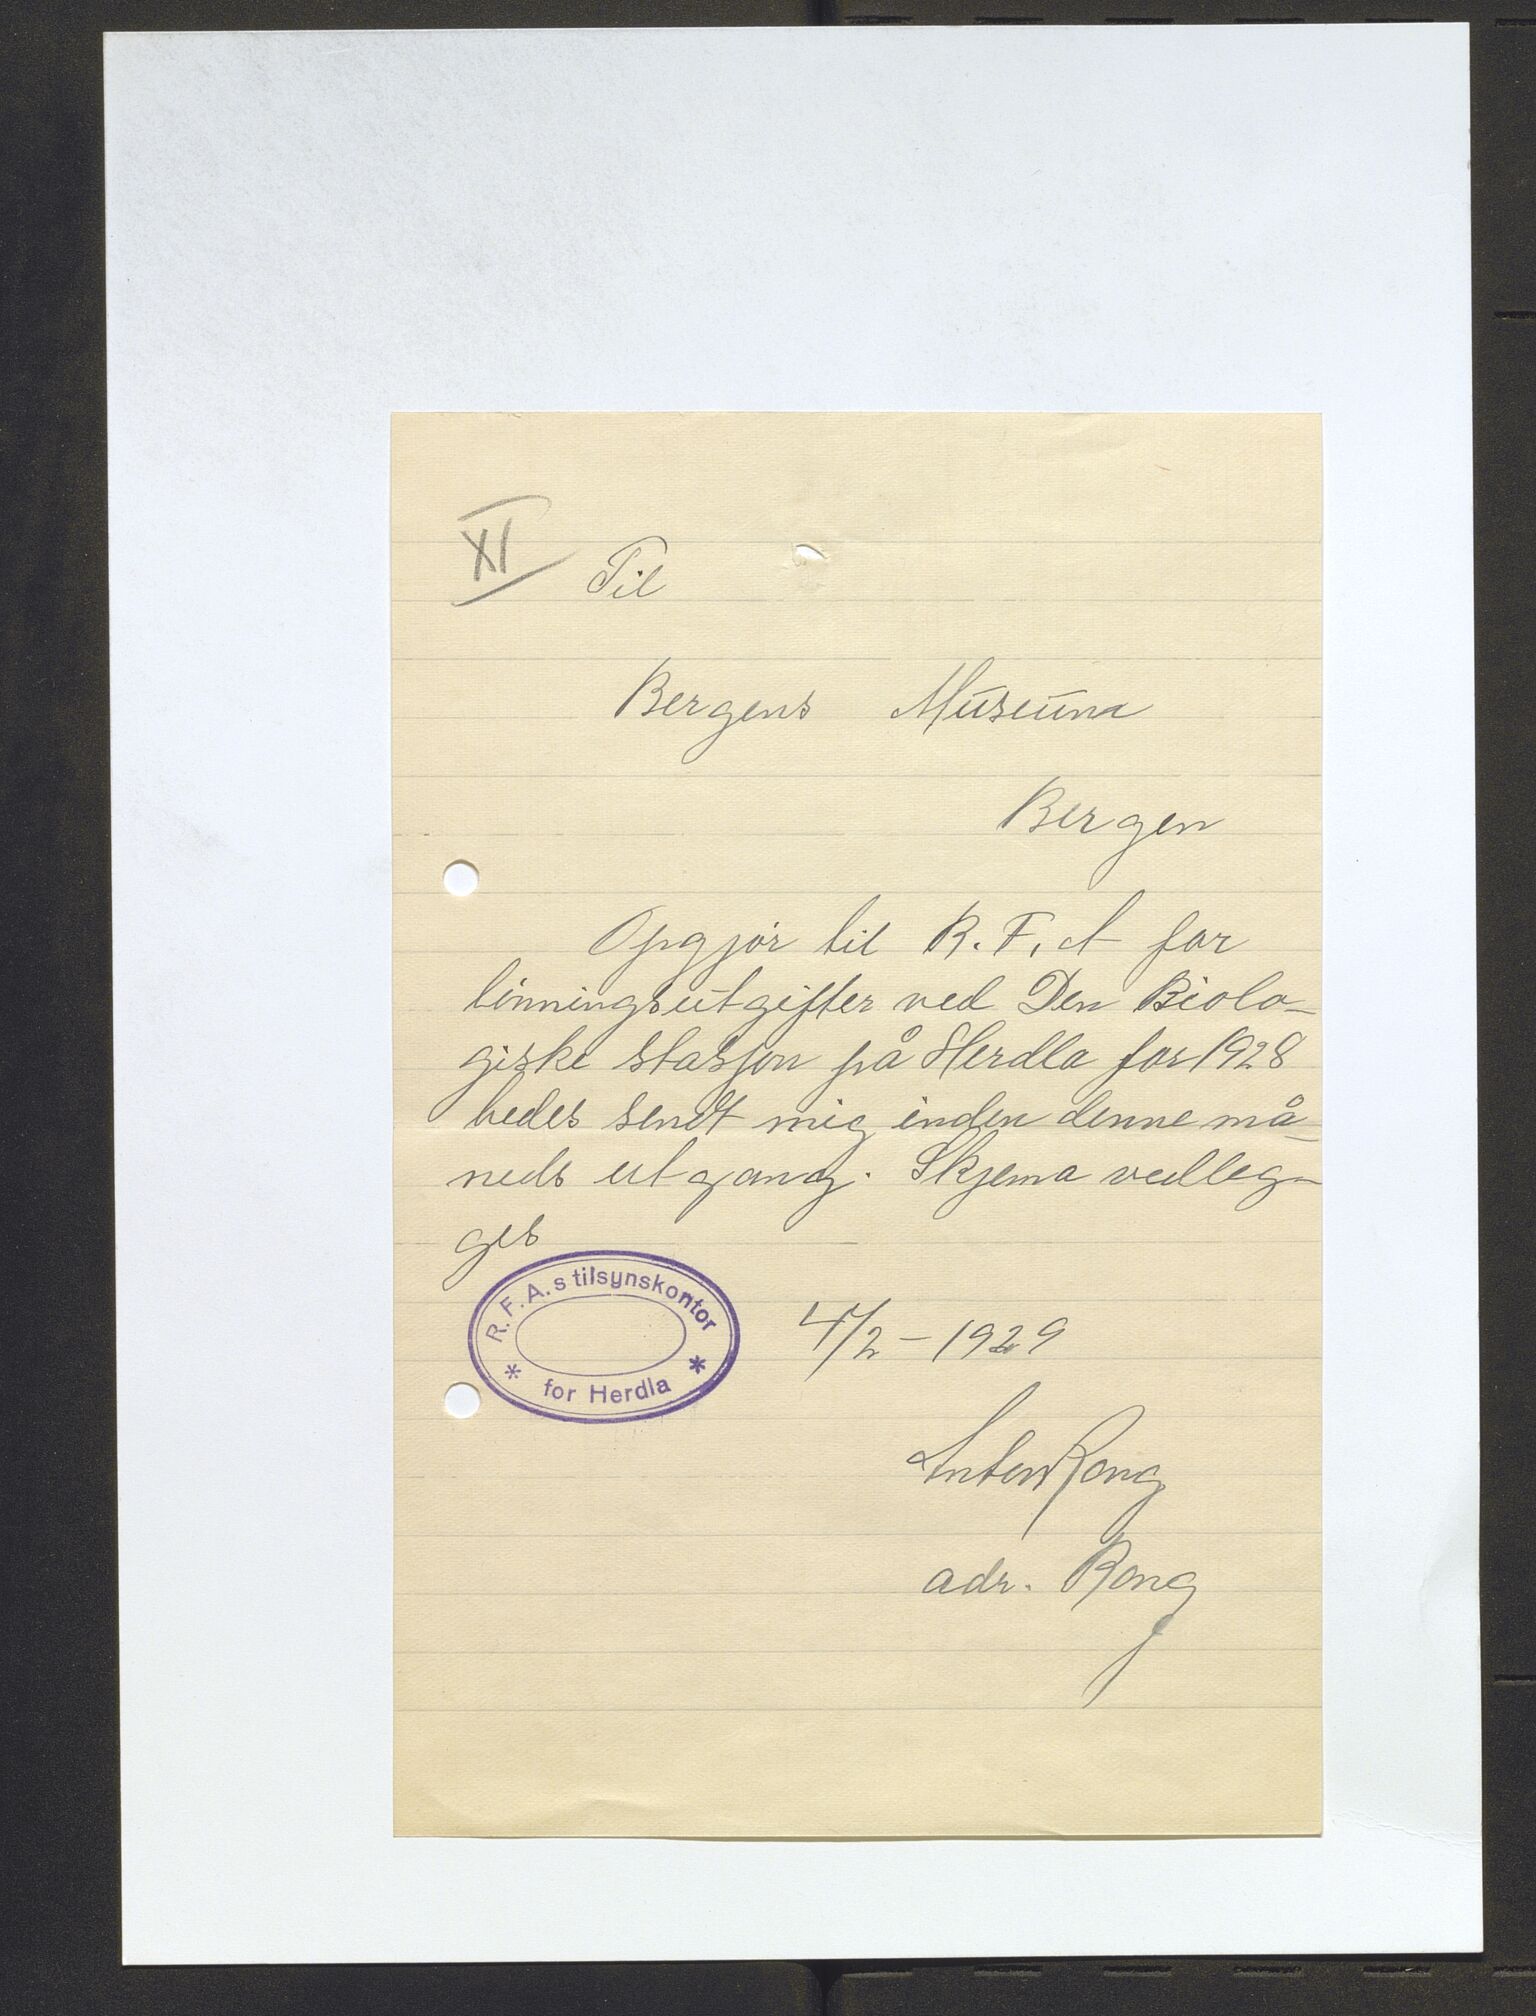 XI
Til
Bergens Museum
Bergen
Opgjør til R. F. A for
lønningsutgifter ved Den Biolo-
giske stasjon på Herdla for 1928
bedes sendt mig inden denne må-
neds utgang. Skjema vedleg-
ges
R. F. A. s tilsynskontor
* for Herdla *
4/2 - 1929
Anton Rong
adr. Rong